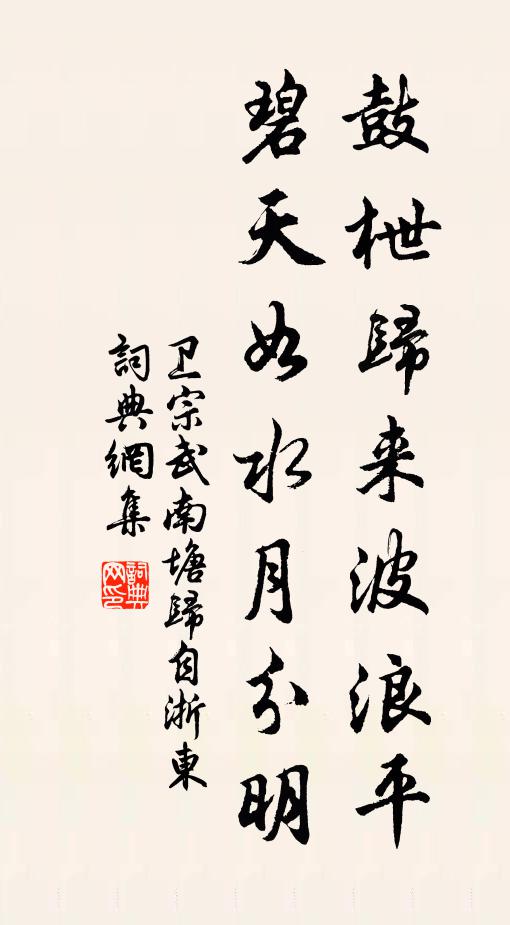 鼓枻歸来波浪平
碧天如水月分明
卫宗武南塘歸自浙東
詞典網集
詞典网印